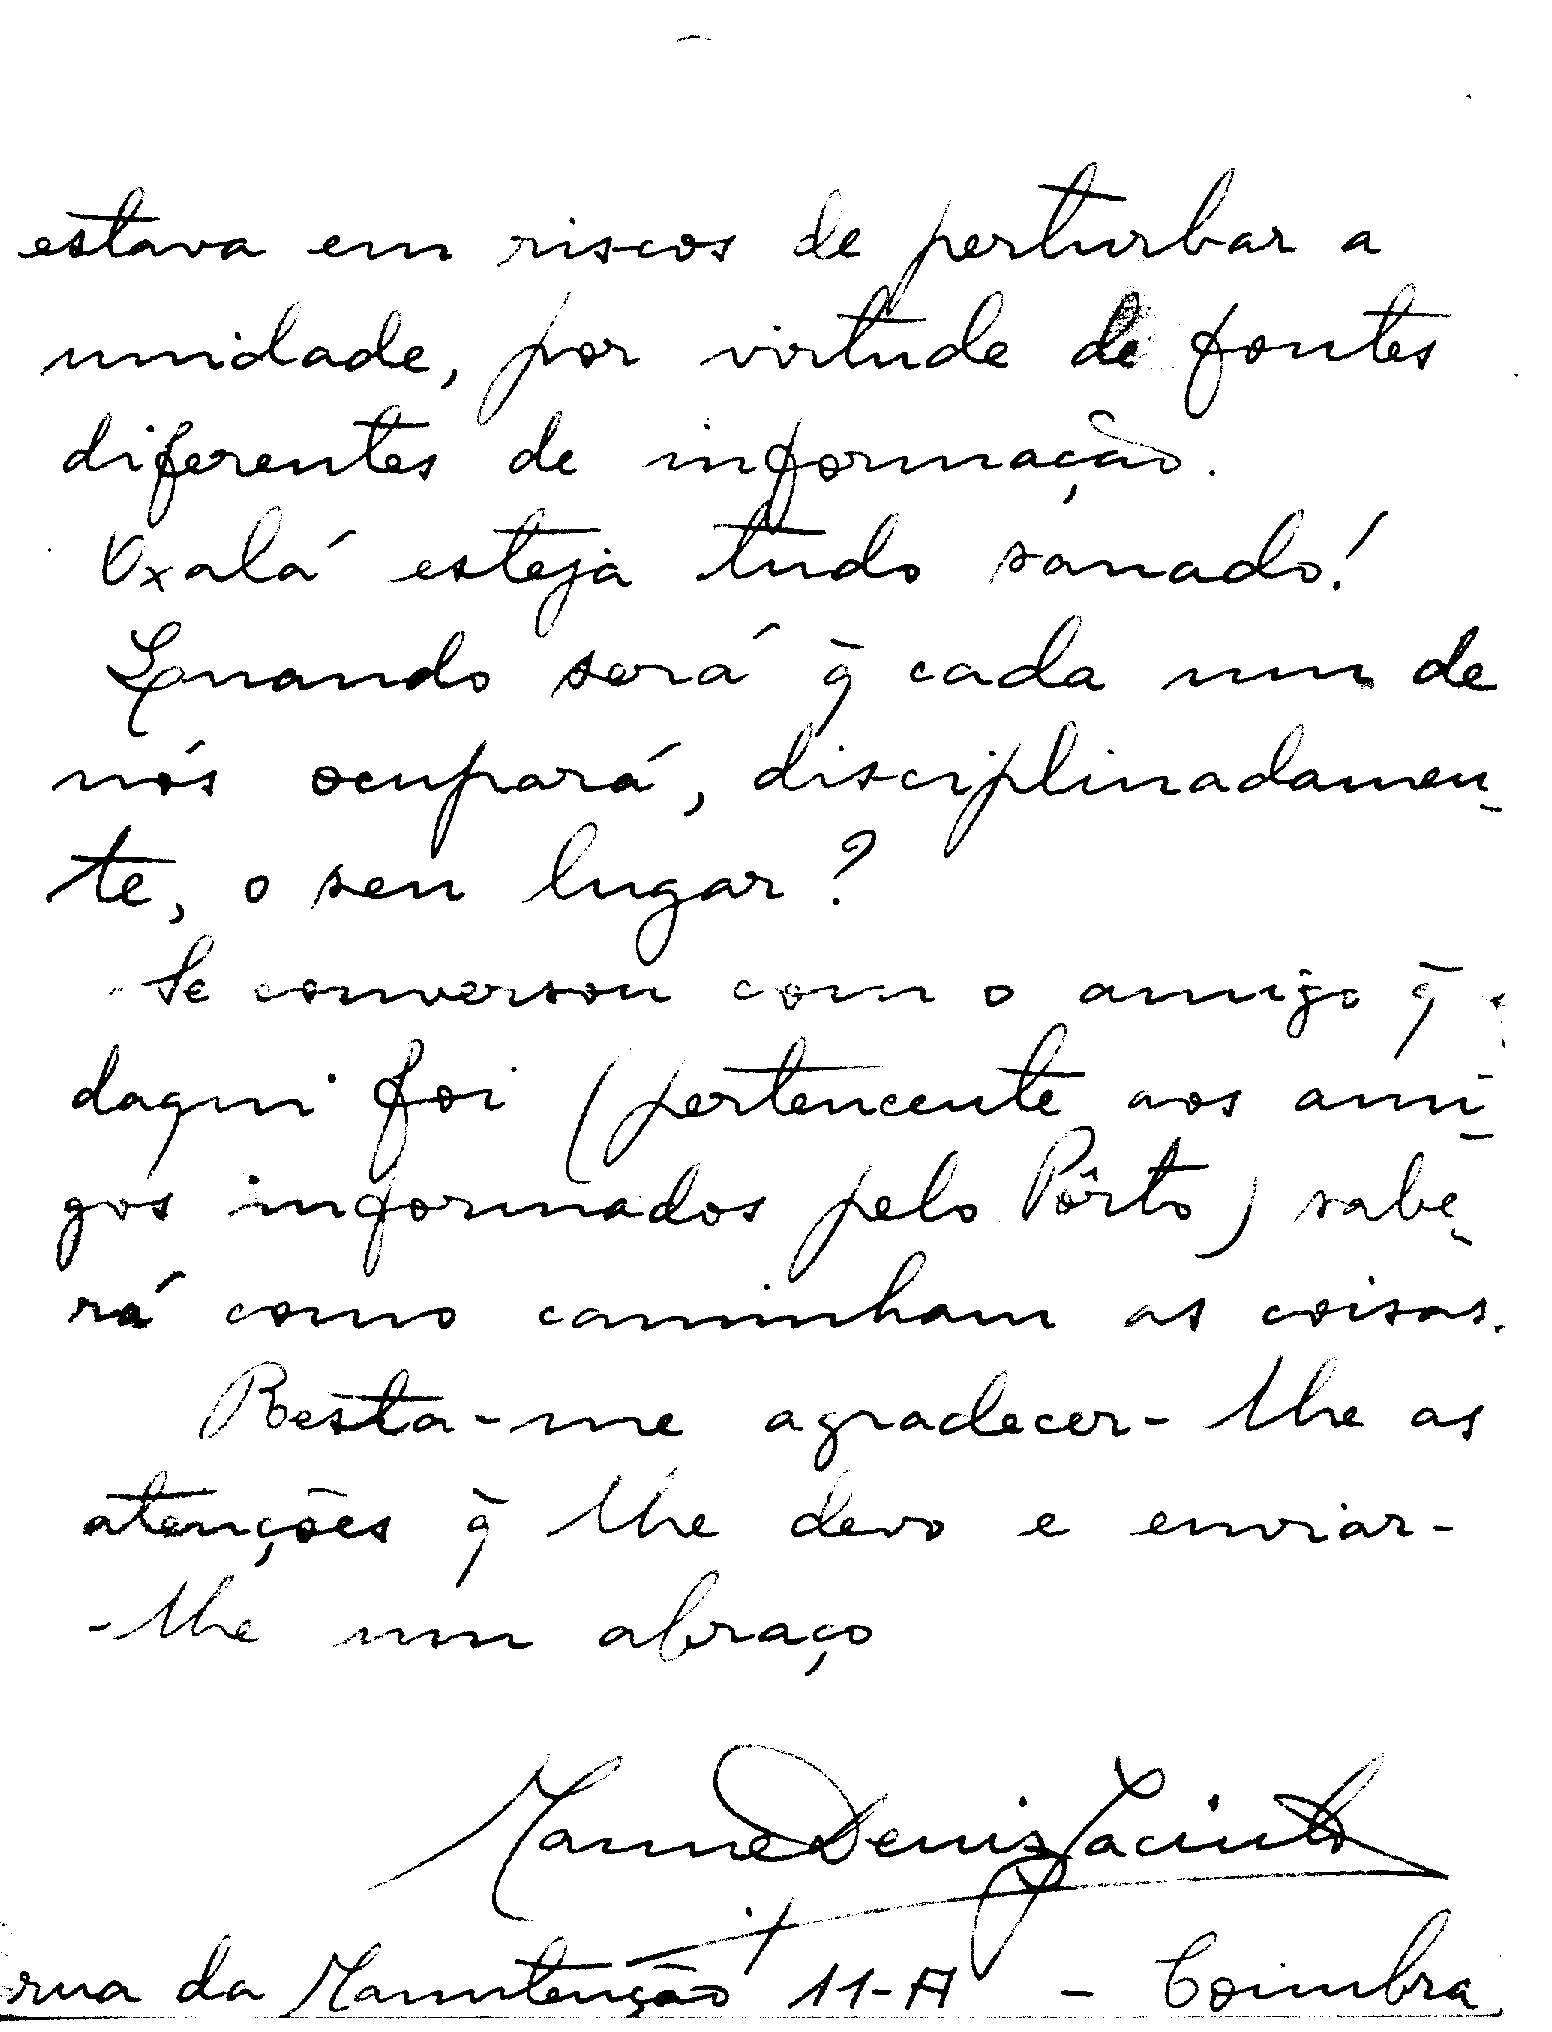 estava em riscos de perturbar a
unidade, por virtude de fontes
diferentes de informação.
Oxalá esteja tudo sanado!
Quando será q̄ cada um de
nós ocupará, disciplinadamen-
te, o seu lugar?
Se conversou com o amigo q̄
daqui foi (pertencente aos ami-
gos informados pelo Pôrto) sabe-
rá como caminham as coisas.
Resta-me agradecer-lhe as
atenções q̄ lhe devo e enviar-
-lhe um abraço
Manuel Deniz Jacinto
rua da Manutenção 11-A - Coimbra